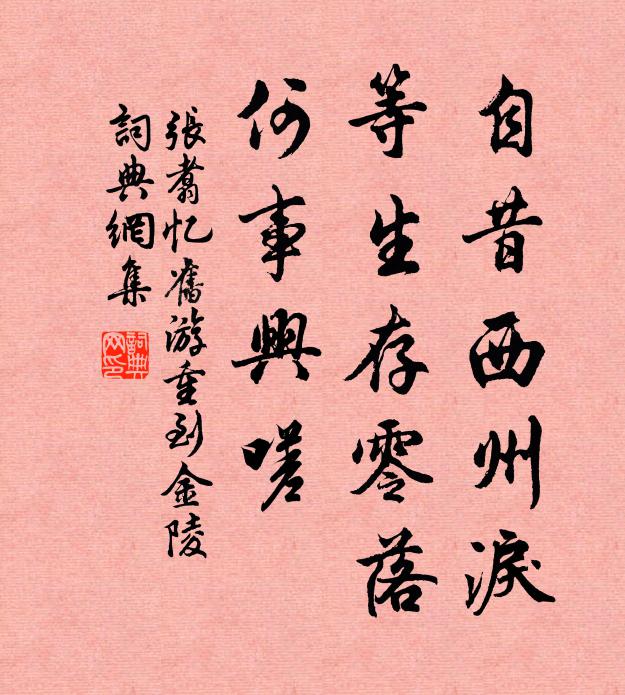 自昔西州淚
等生存零落
何事興嗟
張翥忆舊游重到金陵
詞典網集
詞典网印